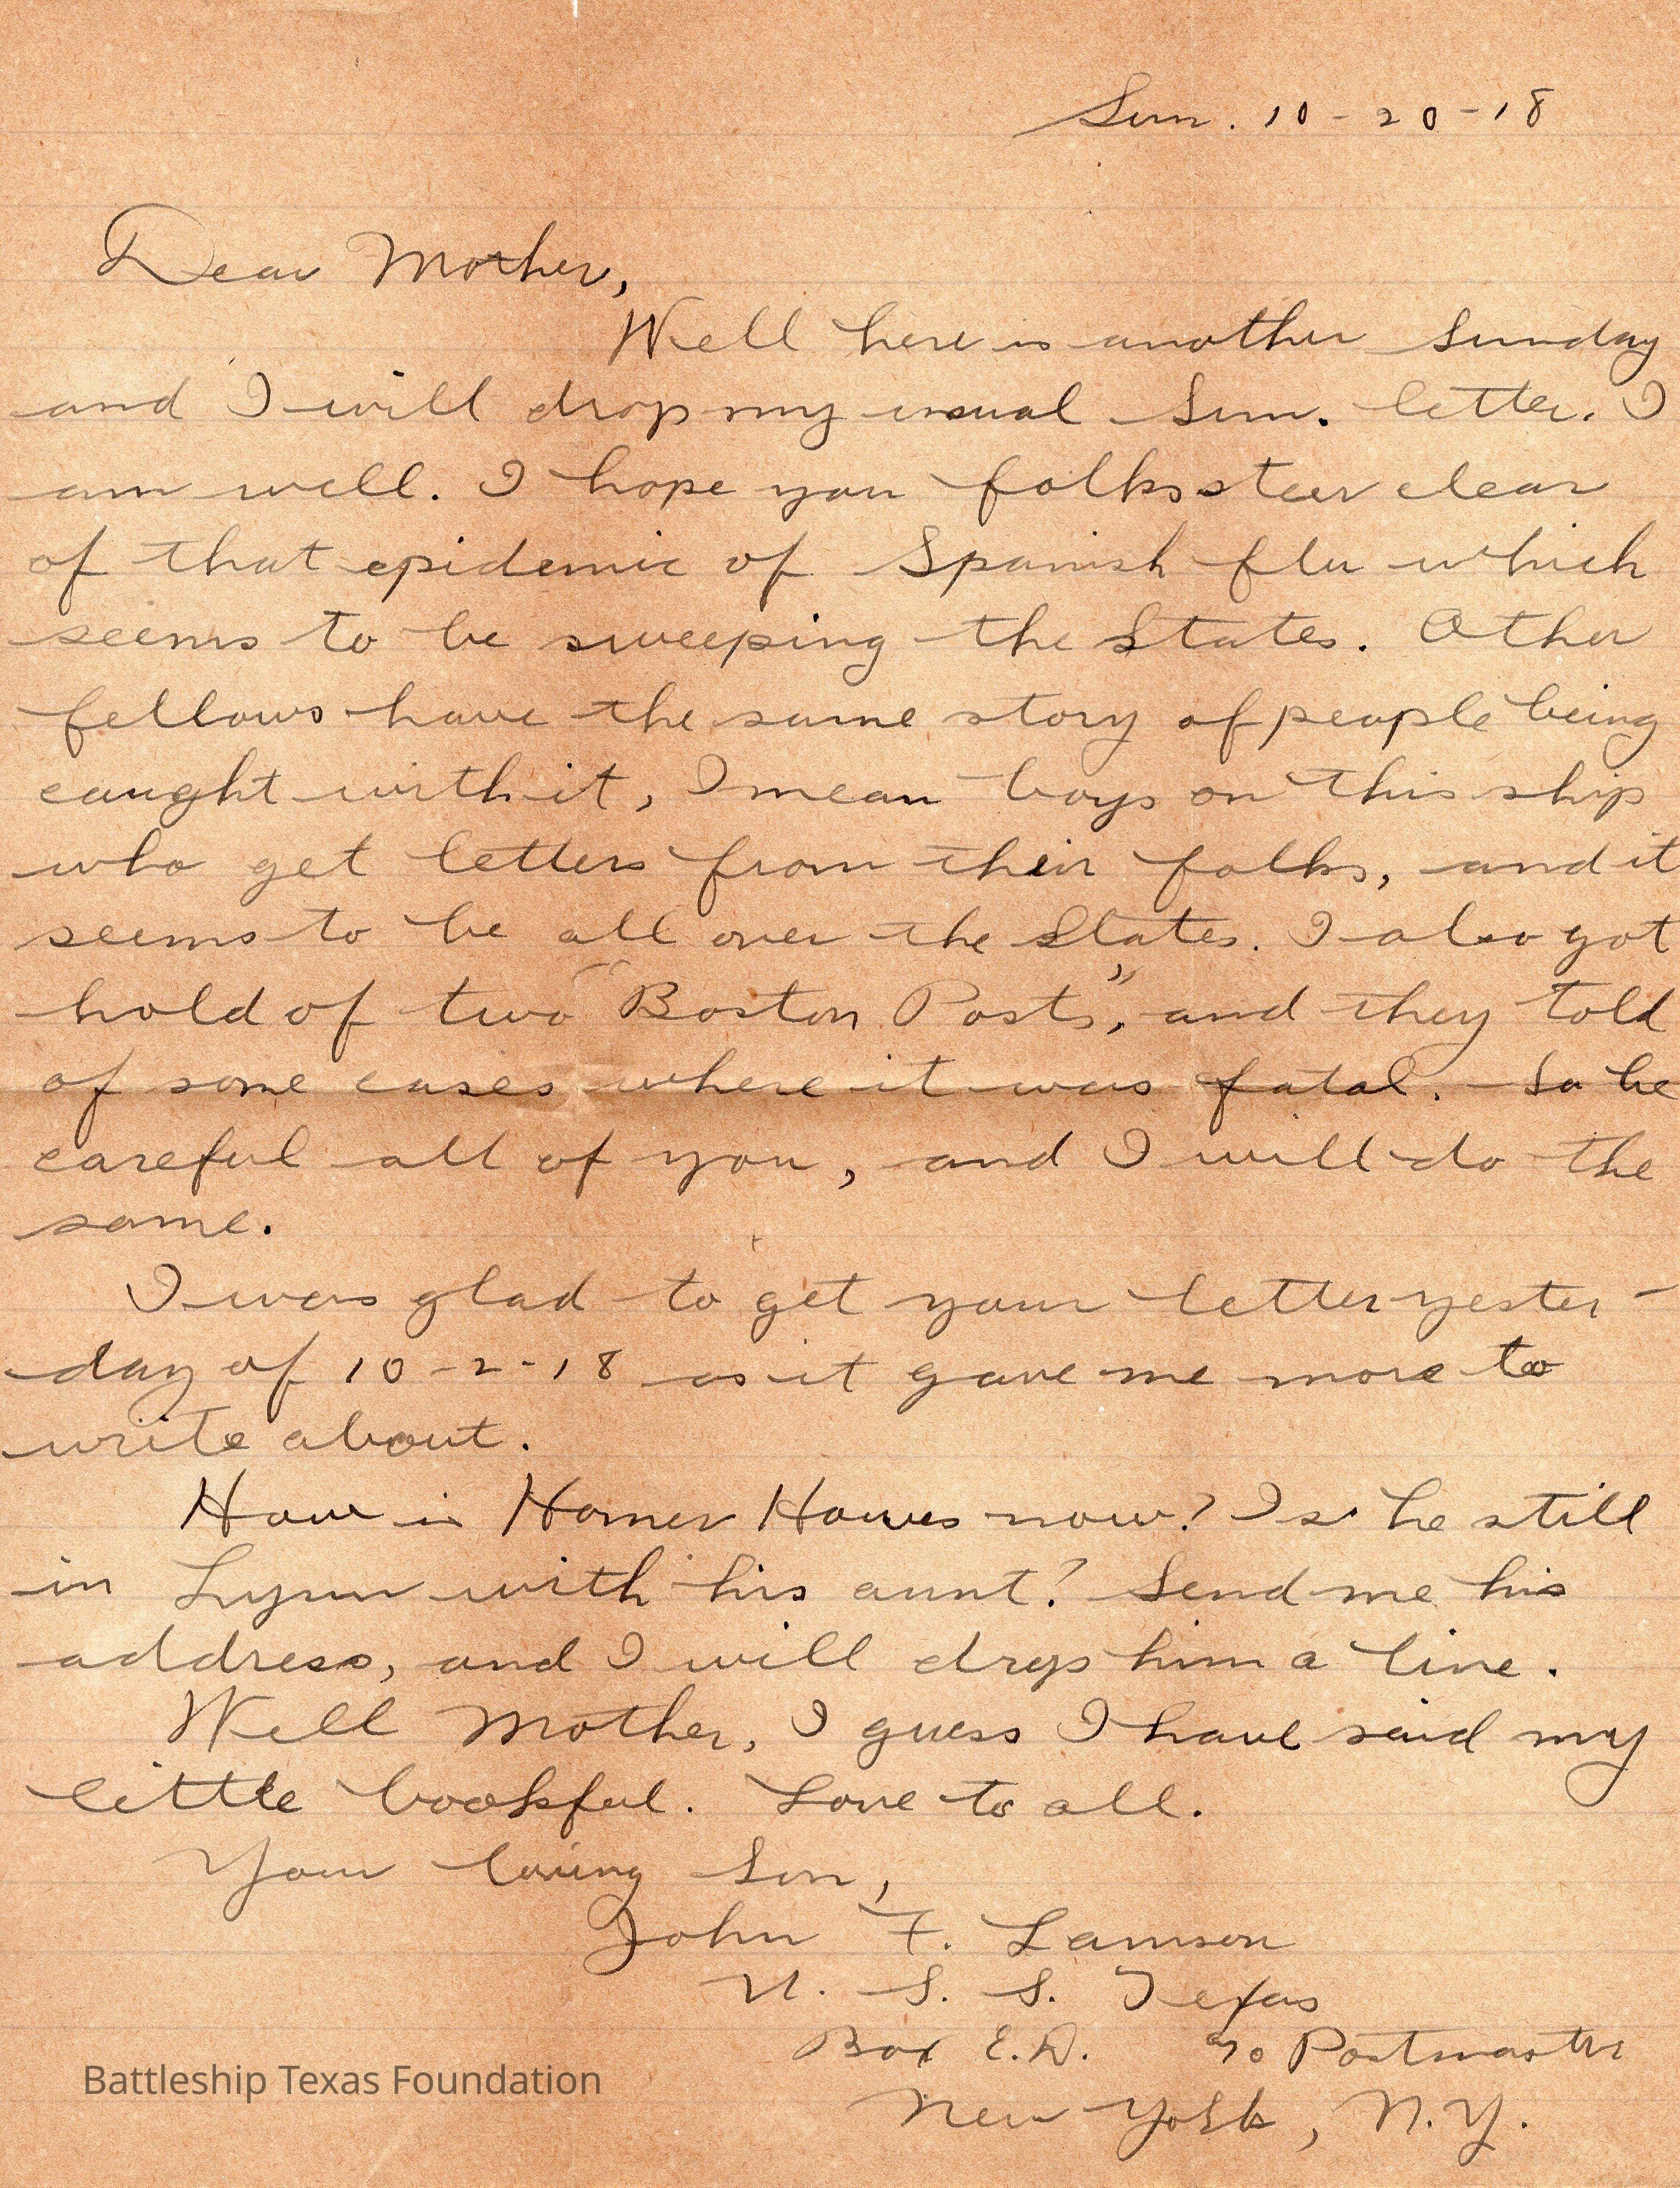 Sun. 10-20-18
Dear Mother,
Well here is another Sunday
and I will drop my usual Sun. letter. I
am well. I hope you folks steer clear
of that epidemic of Spanish flu which
seems to be sweeping the States. Other
fellows have the same story of people being
caught with it, I mean boys on this ship
who get letters from their folks, and it
seems to be all over the States. I also got
hold of two "Boston Posts", and they told
of some cases where it was fatal. So be
careful all of you, and I will do the
same.
I was glad to get your letter yester-
day of 10-2-18 as it gave me more to
write about.
How is Homer Howes now? Is he still
in Lynn with his aunt? Send me his
address, and I will drop him a line.
Well Mother, I guess I have said my
little bookful. Love to all.
Your loving Son,
John F. Lamson
U. S. S. Texas
Box E.D. c/o Postmaster
New York, N.Y.
Battleship Texas Foundation